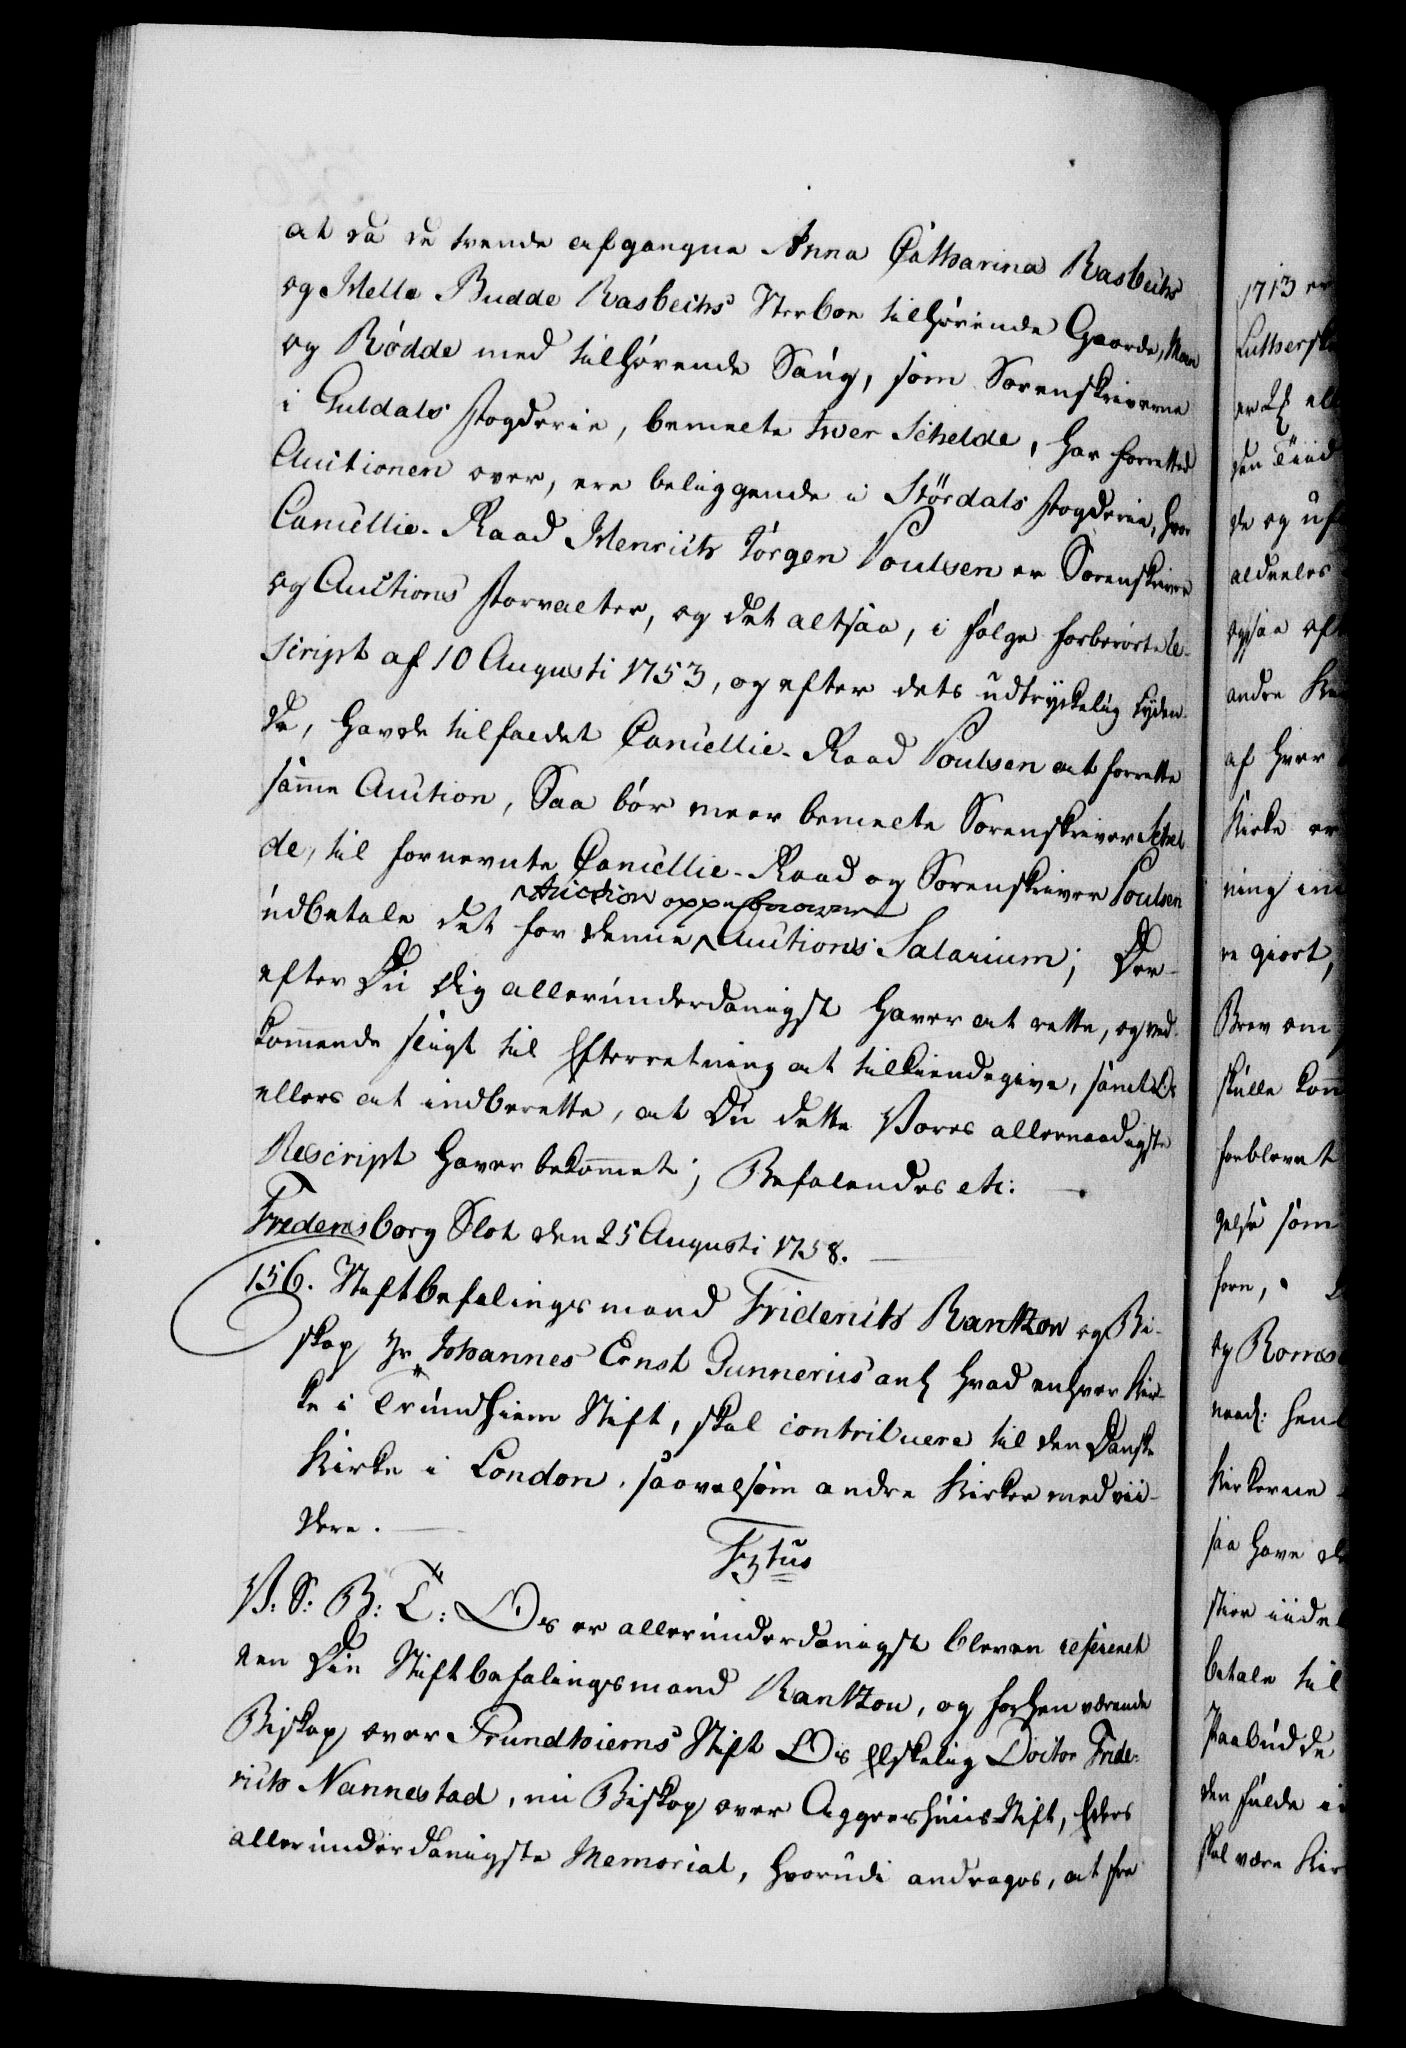 at da de tvende afgangne Anna Catharina Rasbechs
og Melle Budde Rasbechs Sterboe tilhørende Gaarde, Moen
og Rødde med tilhørende Saug, som Sorenskriverne
i Guldals Fogderie, bemelte Iver Schelde, har forrettet
Auctionen over, ere beliggende i Stördals Fogderie, hvor
Cancellie-Raad Henrich Jörgen Poulsen er Sorenskriver
og Auctions Forvalter, og det altsaa, i følge forberørte Re-
script af 10 Augusti 1753, og efter dets udtrykelig Lyden-
de, havde tilfaldet Cancellie-Raad Poulsen at forrette
samme Auction, Saa bör meer bemelte Sorenskriver Schel-
de, til fornevnte Cancellie-Raad og Sorenskriver Poulsen
Auction oppebaarne
udbetale det for denne Auctions Salarium; Der-
efter Du dig allerunderdanigst haver at rette, og ved-
kommende sligt til Efterretning at tilkiendegive, samt Os
ellers at indberette, at Du dette Vores allernaadigste
Rescript haver bekommet; Befalendes etc:
Fredensborg Slot den 25 Augusti 1758.
156. Stiftbefalingsmand Friderich Rantzow og Bi-
skop Hr Johannes Ernst Gunnerus anl hvad enhver Kir-
ke i Trundhiem Stift, skal contribuere til den Danske
Kirke i London, saavelsom andre Kirker med vii-
dere.
F 5tus
V: S: B: T: Os er allerunderdanigst bleven refereret
den Din Stiftbefalingsmand Rantzou, og forhen værende
Biskop over Trundhiems Stift Os Elskelig Doctor Fride-
rich Nannestad, nu Biskop over Aggershuus Stift, Eders
allerunderdanigste Memorial, hvorudi andrages, at fra
1713 er
Luthersk
er 2
den Tiid
de og uf
aldeeles
ogsaa af
andre Kir
af hver
Kirke er
ning in
re giort,
Brev om
skulle kom
forblevet
gelse som
forn,
og Roms
naad: hen
Kirkerne
saa have d
stier iide
betale til
Paabudde
den fulde i
skal være Kir